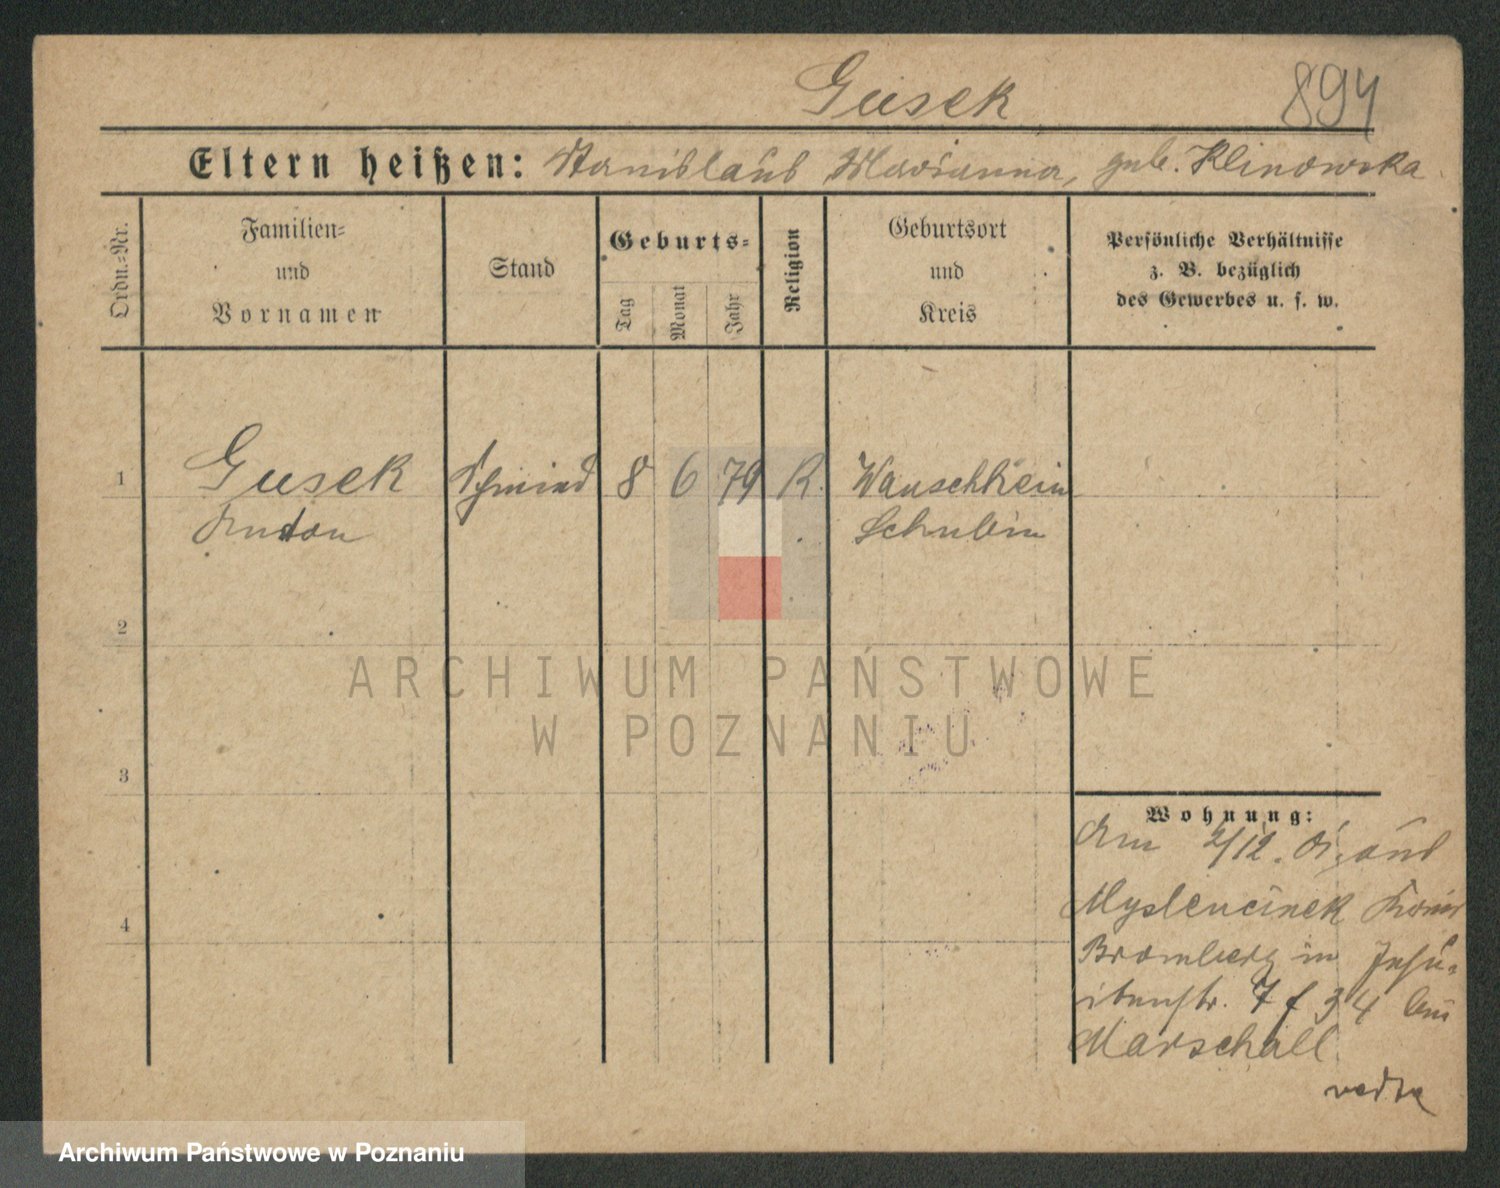 Gusek
894
Eltern heißen: Stanislaus Marianna, geb. Klinowska
Ordn.=Nr.
Familien=
und
Vornamen
Stand
Geburts=
Tag
Monat
Jahr
Religion
Geburtsort
und
Kreis
Persönliche Verhältnisse
z. B. bezüglich
des Gewerbes u. s. w.
1
Gusek Schmied 8 6 79 K. Wauschkein
Anton Schubin
2
ARCHIWUM PAŃSTWOWE
W POZNANIU
3
Wohnung:
Am 2/12. 01. aus
Myslencinek Kreis
Bromberg in Jesu=
itenstr. 7 f 34 bei
Marschall
4
Archiwum Państwowe w Poznaniu